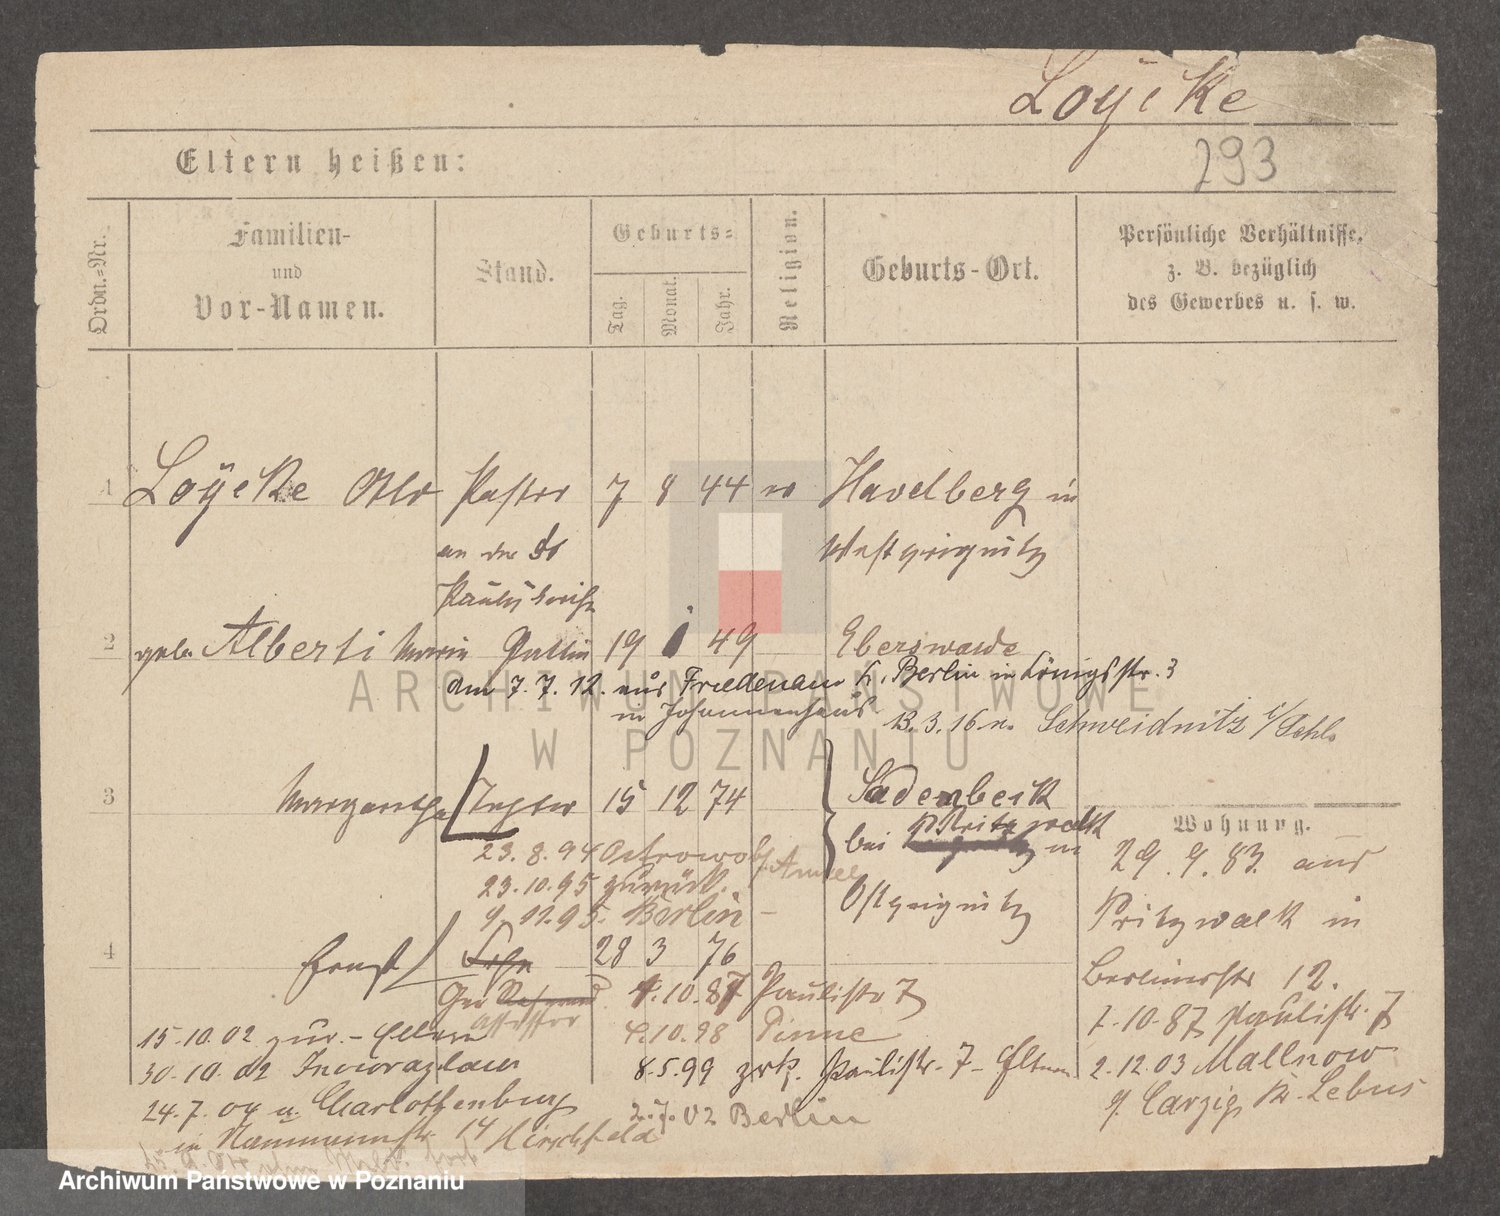 Loycke
293
Eltern heißen:
Ordn.-Nr.
Familien-
und
Vor-Namen.
Stand.
Geburts-
Tag.
Monat.
Jahr.
Religion.
Geburts-Ort.
Persönliche Verhältnisse,
z. B. bezüglich
des Gewerbes u. s. w.
1 Loÿcke Otto Pastor 7 8 44 ev Havelberg in
an der St Westprignitz
Paulikirche
2 geb. Alberti Marie Gattin 19 49 Eberswalde
am 7. 7. 12. aus Friedenau b. Berlin in Königsstr. 3
in Johannenhaus 13. 3. 16 n. Schweidnitz i/Schls
3 Margarethe Tochter 15 12 74 Sadenbeck
bei Pritzwalk in
Ostprignitz
23. 8. 94 Ostrowo
23. 10. 95 zurück.
9. 11. 95. Berlin -
Wohnung.
29. 9. 83. aus
Pritzwalk in
Berlinerstr 12.
1. 10. 87 Paulistr. 7
2. 12. 03 Mallnow
Carzig Kr. Lebus
4 Ernst Sohn 28 3 76
1. 10. 87 Paulistr 7
Assessor
4. 10. 98 Pinne
8. 5. 99 zrk. Paulistr. 7 - Eltern
2. 7. 02 Berlin
15. 10. 02 zur. - Eltern
30. 10. 02 Inowrazlaw
24. 7. 04 n. Charlottenburg
in Naumannstr. 14 Hirschfeld
ARCHIWUM PAŃSTWOWE
W POZNANIU
Archiwum Państwowe w Poznaniu